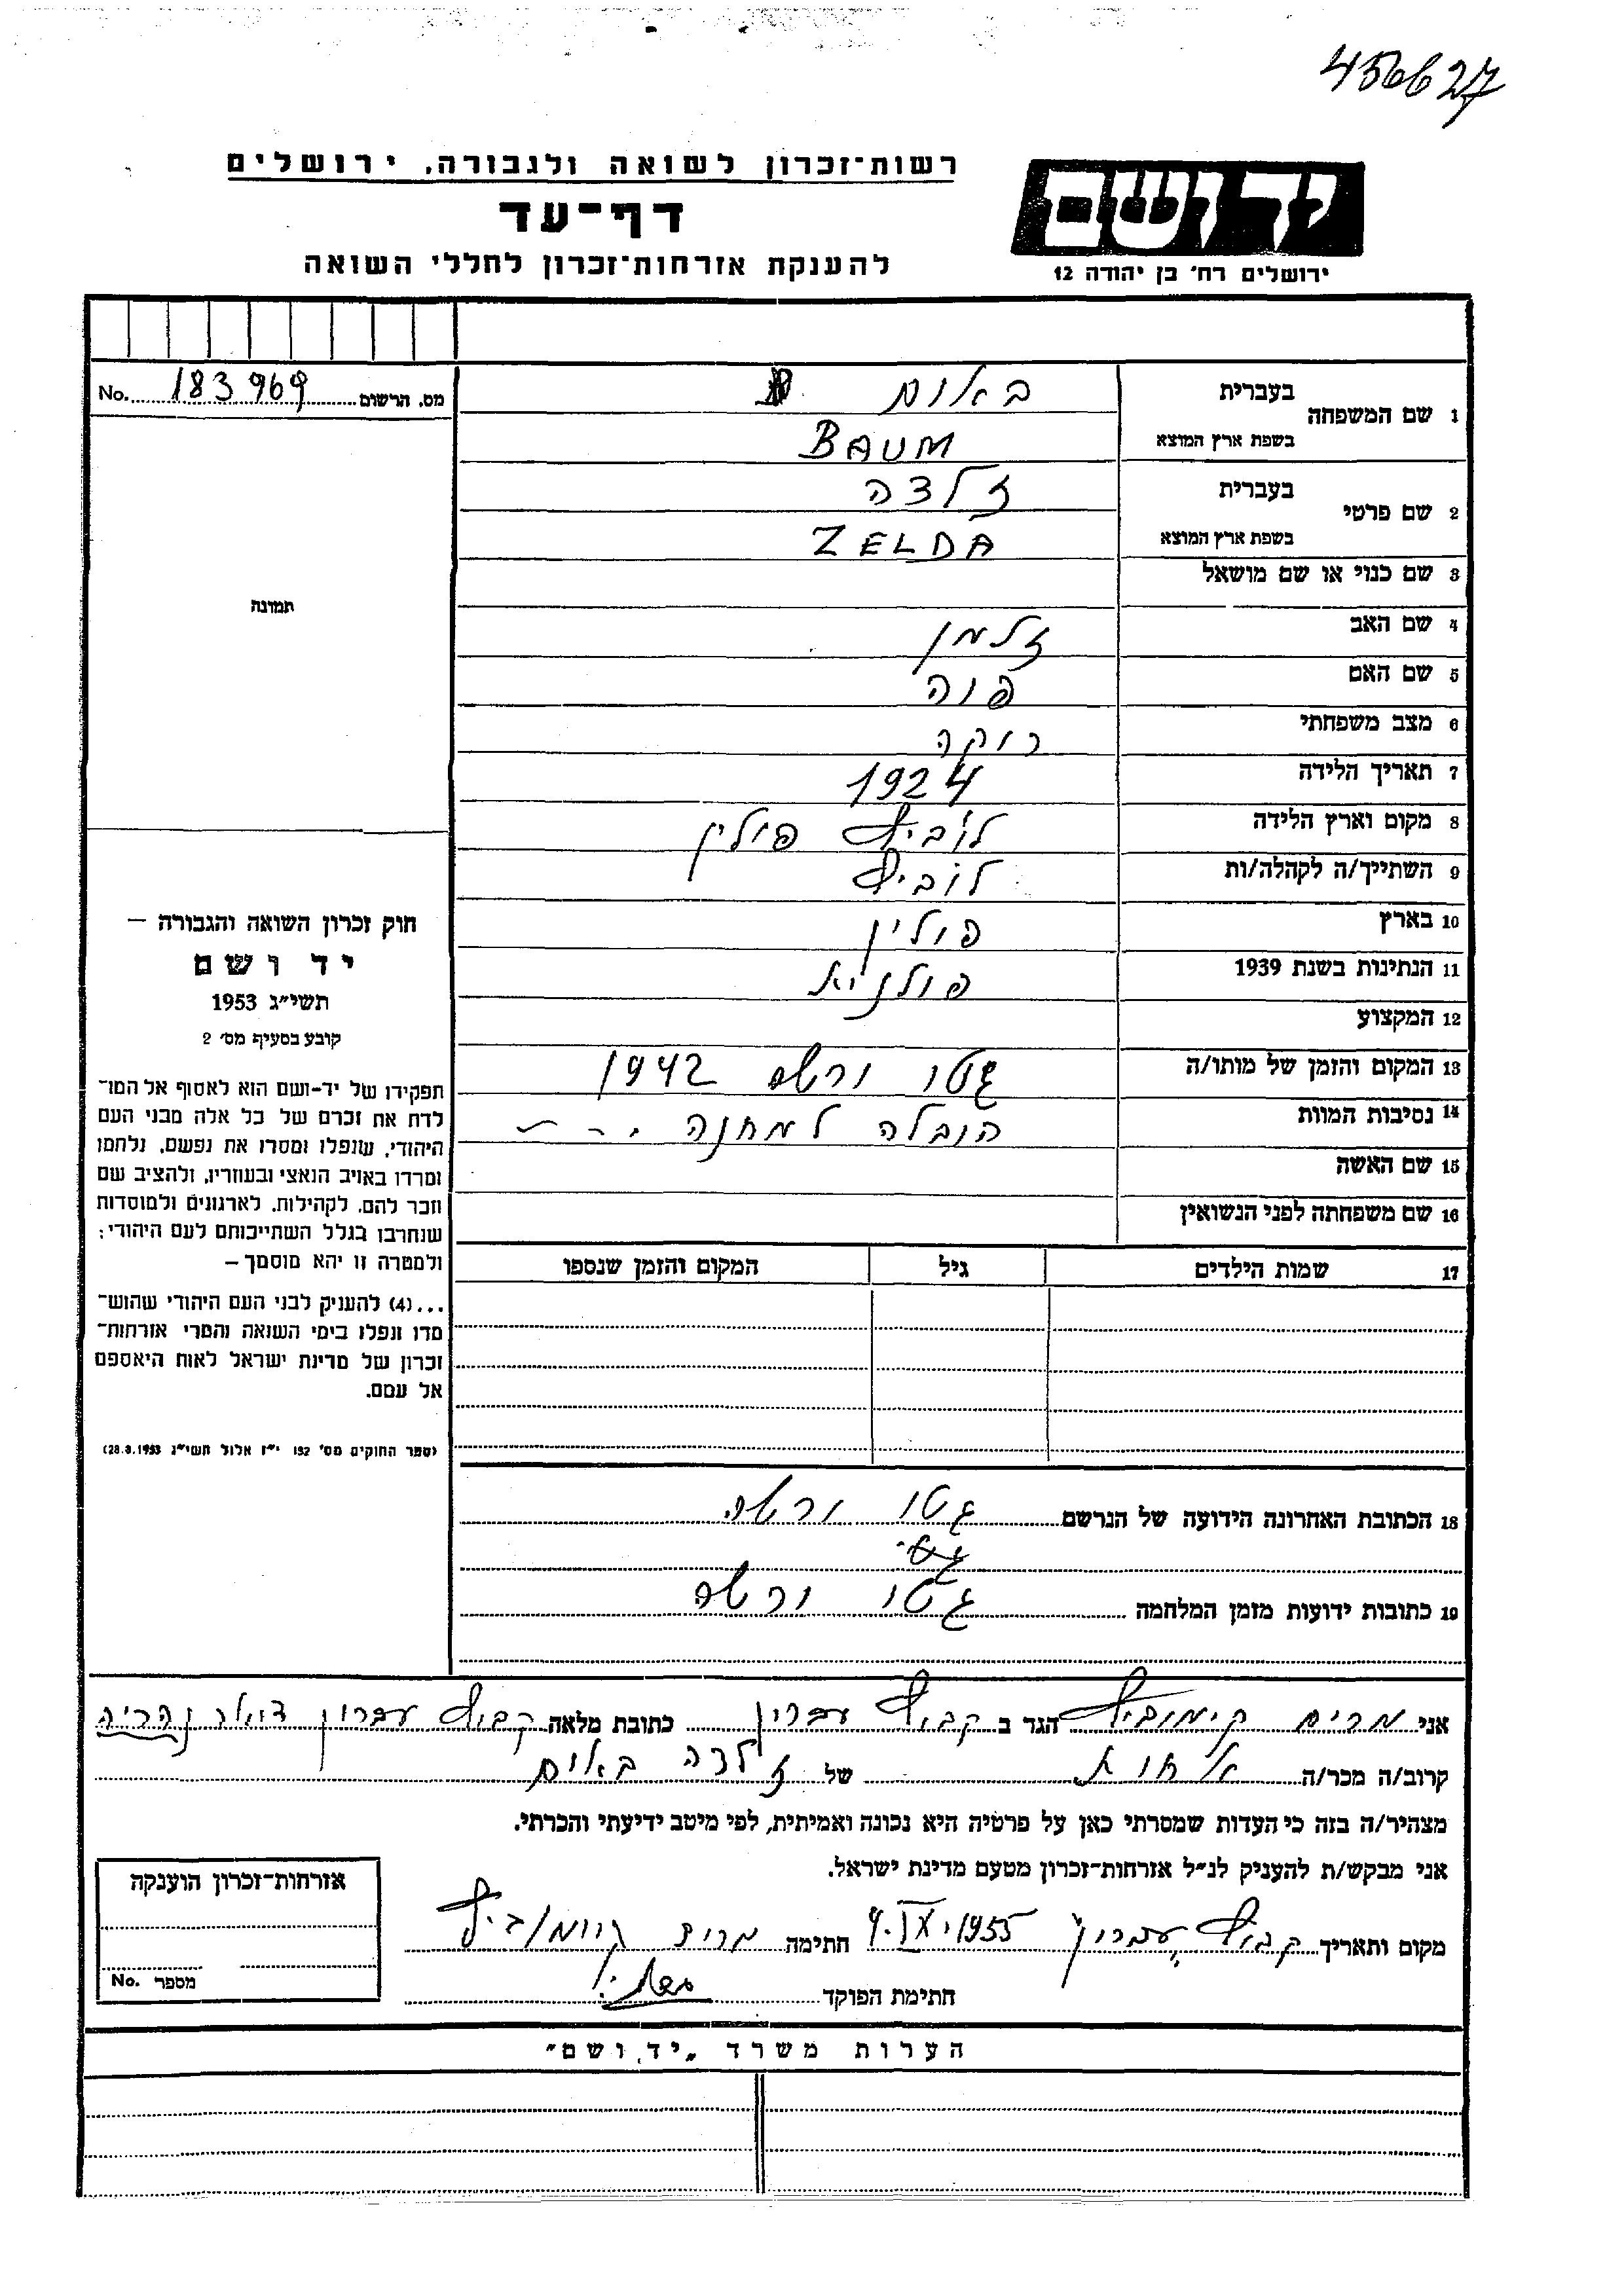 456627
רשות־זכרון לשואה ולגבורה, ירושלים
יד ושם
דף־עד
ירושלים רח' בן יהודה 12
להענקת אזרחות־זכרון לחללי השואה
מס. הרשום 183969 No.
1 שם המשפחה
בעברית באום
בשפת ארץ המוצא BAUM
2 שם פרטי
בעברית זלדה
בשפת ארץ המוצא ZELDA
3 שם כנוי או שם מושאל
4 שם האב זלמן
5 שם האם פוה
6 מצב משפחתי רוקה
7 תאריך הלידה 1924
8 מקום וארץ הלידה לוביץ פולין
9 השתייך/ה לקהלה/ות לוביץ
10 בארץ פולין
11 הנתינות בשנת 1939 פולניא
12 המקצוע
13 המקום והזמן של מותו/ה גטו ורשה 1942
14 נסיבות המוות הובלה למחנה
15 שם האשה
16 שם משפחתה לפני הנשואין
17 שמות הילדים גיל המקום והזמן שנספו
תמונה
חוק זכרון השואה והגבורה —
יד ושם
תשי"ג 1953
קובע בסעיף מס' 2
תפקידו של יד-ושם הוא לאסוף אל המו־
לדת את זכרם של כל אלה מבני העם
היהודי, שנפלו ומסרו את נפשם, נלחמו
ומרדו באויב הנאצי ובעוזריו, ולהציב שם
וזכר להם, לקהילות, לארגונים ולמוסדות
שנחרבו בגלל השתייכותם לעם היהודי;
ולמטרה זו יהא מוסמך –
...(4) להעניק לבני העם היהודי שהוש־
מדו ונפלו בימי השואה והמרי אזרחות־
זכרון של מדינת ישראל לאות היאספם
אל עמם.
(ספר החוקים מס' 132 י"ז אלול תשי"ג 28.8.1953)
18 הכתובת האחרונה הידועה של הנרשם גטו ורשה
19 כתובות ידועות מזמן המלחמה גטו ורשה
אני מרים קימוביץ הגר ב קבוץ עברון כתובת מלאה קבוץ עברון דואר נהריה
קרוב/ה מכר/ה אחות של זלדה באום
מצהיר/ה בזה כי העדות שמסרתי כאן על פרטיה היא נכונה ואמיתית, לפי מיטב ידיעתי והכרתי.
אני מבקש/ת להעניק לנ"ל אזרחות-זכרון מטעם מדינת ישראל.
מקום ותאריך קבוץ עברון 4.IX.1955 חתימה מרים קיומוביץ
חתימת הפוקד
אזרחות-זכרון הוענקה
מספר No.
הערות משרד "יד ושם"